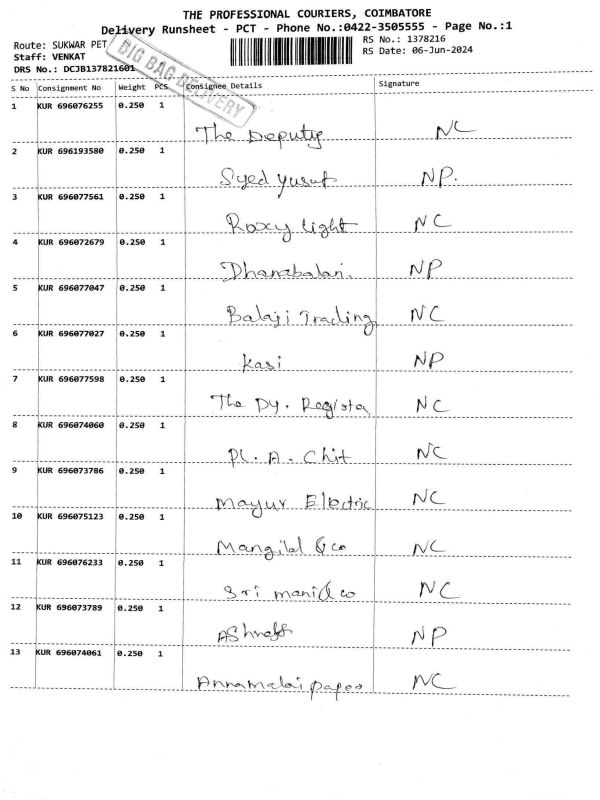 THE PROFESSIONAL COURIERS, COIMBATORE
Delivery Runsheet - PCT - Phone No.:0422-3505555 - Page No.:1
Route: SUKWAR PET
RS No.: 1378216
Staff: VENKAT
RS Date: 06-Jun-2024
DRS No.: DCJB137821601
BIG BAG DELIVERY
S No Consignment No Weight PCS Consignee Details Signature
1 KUR 696076255 0.250 1
The Deputy NC
2 KUR 696193580 0.250 1
Syed Yusuf NP.
3 KUR 696077561 0.250 1
Roxy light NC
4 KUR 696072679 0.250 1
Dhanabalan. NP
5 KUR 696077047 0.250 1
Balaji Trading NC
6 KUR 696077027 0.250 1
Kasi NP
7 KUR 696077598 0.250 1
The Dy. Registar NC
8 KUR 696074060 0.250 1
Pl. A. Chit NC
9 KUR 696073786 0.250 1
Mayur Electric NC
10 KUR 696075123 0.250 1
Mangilal & co NC
11 KUR 696076233 0.250 1
Sri mani & co NC
12 KUR 696073789 0.250 1
NP
13 KUR 696074061 0.250 1
Annamalai paper NC